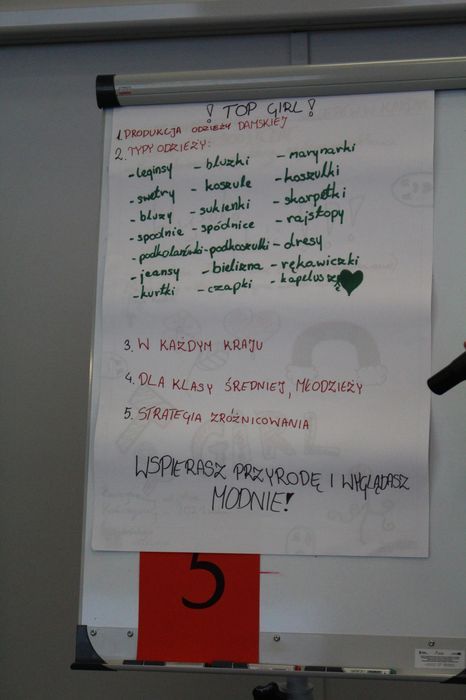 ! TOP GIRL !
1. PRODUKCJA ODZIEŻY DAMSKIEJ
2. TYPY ODZIEŻY:
- leginsy - bluzki - marynarki
- swetry - koszule - koszulki
- bluzy - sukienki - skarpetki
- spodnie - spódnice - rajstopy
- podkolanówki - podkoszulki - dresy
- jeansy - bielizna - rękawiczki
- kurtki - czapki - kapelusze
3. W KAŻDYM KRAJU
4. DLA KLASY ŚREDNIEJ, MŁODZIEŻY
5. STRATEGIA ZRÓŻNICOWANIA
WSPIERASZ PRZYRODĘ I WYGLĄDASZ
MODNIE!
5